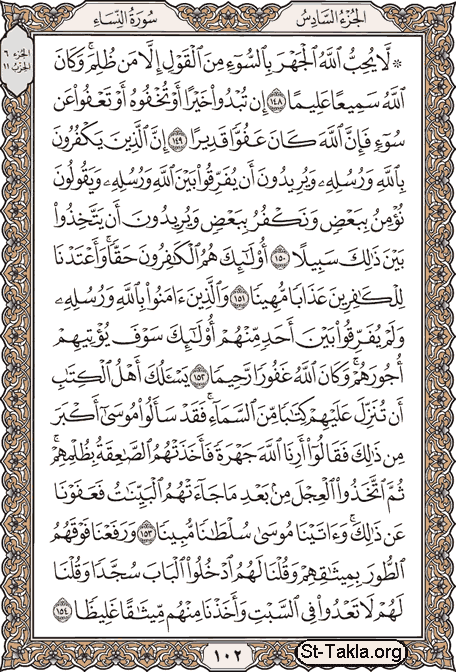 الجزء السادس
سورة النساء
الجزء ٦
الحزب ١١
۞ لَّا يُحِبُّ ٱللَّهُ ٱلْجَهْرَ بِٱلسُّوٓءِ مِنَ ٱلْقَوْلِ إِلَّا مَن ظُلِمَ ۚ وَكَانَ
ٱللَّهُ سَمِيعًا عَلِيمًا ١٤٨ إِن تُبْدُوا۟ خَيْرًا أَوْ تُخْفُوهُ أَوْ تَعْفُوا۟ عَن
سُوٓءٍ فَإِنَّ ٱللَّهَ كَانَ عَفُوًّا قَدِيرًا ١٤٩ إِنَّ ٱلَّذِينَ يَكْفُرُونَ
بِٱللَّهِ وَرُسُلِهِۦ وَيُرِيدُونَ أَن يُفَرِّقُوا۟ بَيْنَ ٱللَّهِ وَرُسُلِهِۦ وَيَقُولُونَ
نُؤْمِنُ بِبَعْضٍ وَنَكْفُرُ بِبَعْضٍ وَيُرِيدُونَ أَن يَتَّخِذُوا۟
بَيْنَ ذَٰلِكَ سَبِيلًا ١٥٠ أُو۟لَـٰٓئِكَ هُمُ ٱلْكَـٰفِرُونَ حَقًّا ۚ وَأَعْتَدْنَا
لِلْكَـٰفِرِينَ عَذَابًا مُّهِينًا ١٥١ وَٱلَّذِينَ ءَامَنُوا۟ بِٱللَّهِ وَرُسُلِهِۦ
وَلَمْ يُفَرِّقُوا۟ بَيْنَ أَحَدٍ مِّنْهُمْ أُو۟لَـٰٓئِكَ سَوْفَ يُؤْتِيهِمْ
أُجُورَهُمْ ۗ وَكَانَ ٱللَّهُ غَفُورًا رَّحِيمًا ١٥٢ يَسْـَٔلُكَ أَهْلُ ٱلْكِتَـٰبِ
أَن تُنَزِّلَ عَلَيْهِمْ كِتَـٰبًا مِّنَ ٱلسَّمَآءِ ۚ فَقَدْ سَأَلُوا۟ مُوسَىٰٓ أَكْبَرَ
مِن ذَٰلِكَ فَقَالُوٓا۟ أَرِنَا ٱللَّهَ جَهْرَةً فَأَخَذَتْهُمُ ٱلصَّـٰعِقَةُ بِظُلْمِهِمْ ۚ
ثُمَّ ٱتَّخَذُوا۟ ٱلْعِجْلَ مِنۢ بَعْدِ مَا جَآءَتْهُمُ ٱلْبَيِّنَـٰتُ فَعَفَوْنَا
عَن ذَٰلِكَ ۚ وَءَاتَيْنَا مُوسَىٰ سُلْطَـٰنًا مُّبِينًا ١٥٣ وَرَفَعْنَا فَوْقَهُمُ
ٱلطُّورَ بِمِيثَـٰقِهِمْ وَقُلْنَا لَهُمُ ٱدْخُلُوا۟ ٱلْبَابَ سُجَّدًا وَقُلْنَا
لَهُمْ لَا تَعْدُوا۟ فِى ٱلسَّبْتِ وَأَخَذْنَا مِنْهُم مِّيثَـٰقًا غَلِيظًا ١٥٤
١٠٢
St-Takla.org